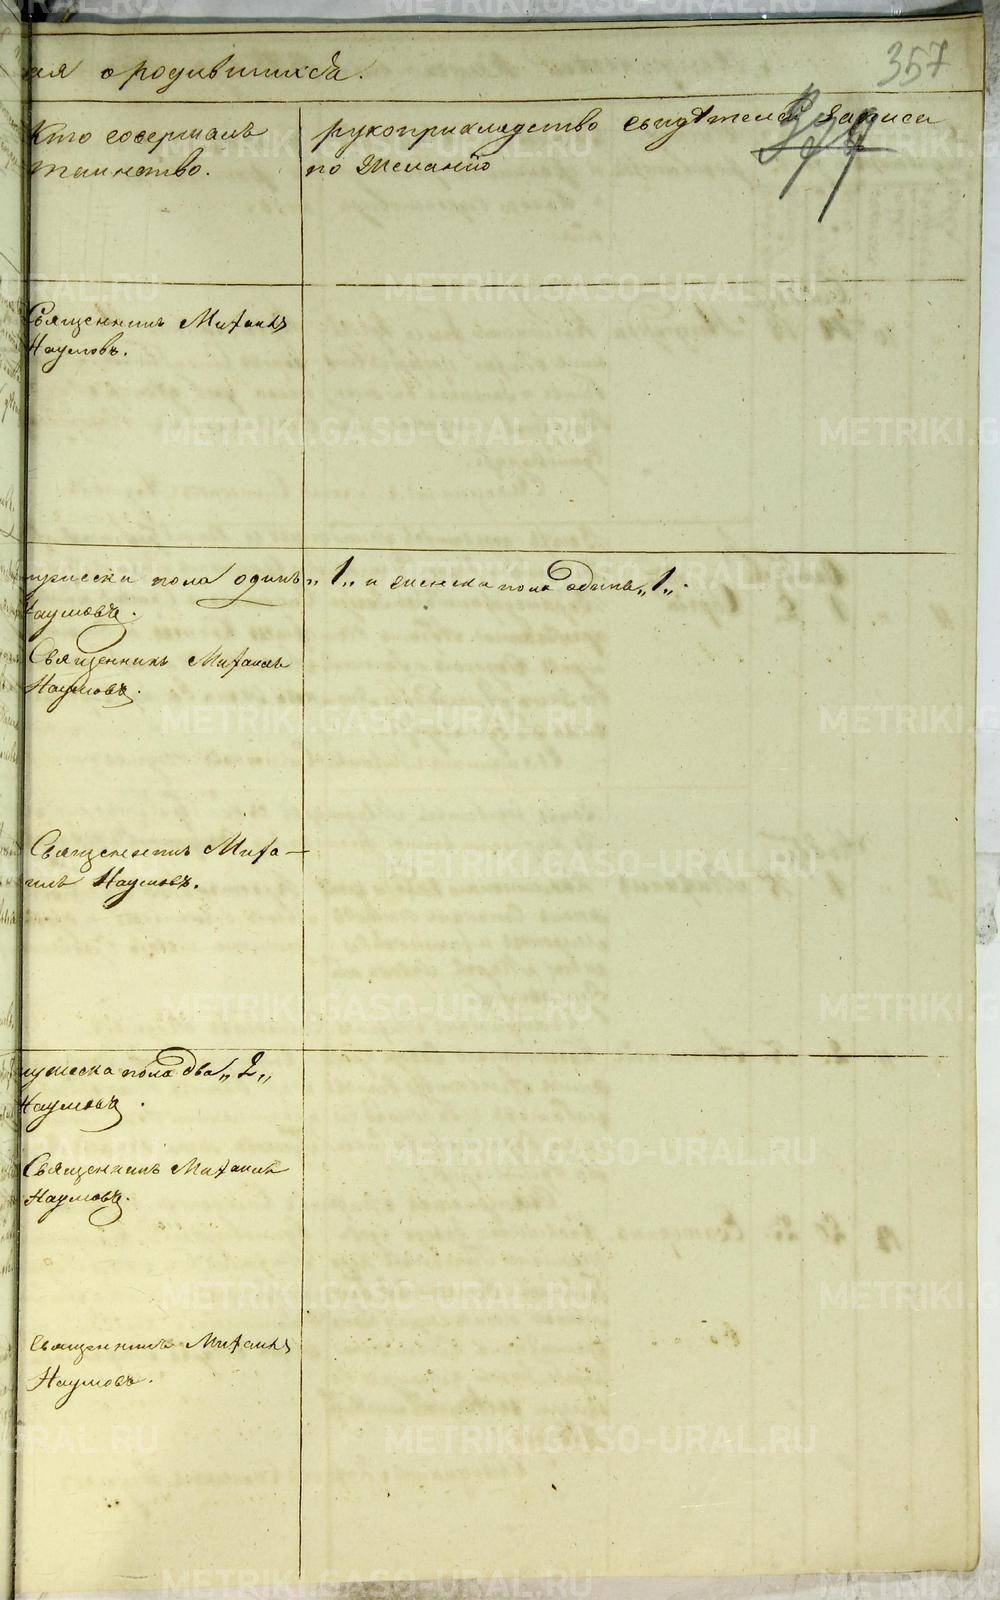 ая ородившихся.
357
Кто совершалъ
таинство.
рукоприкладство свидѣтелей записи
по желанію
Священникъ Михаилъ
Наумовъ.
мужеска пола одинъ „1„ и женска пола одинъ „1„.
Наумовъ.
Священникъ Михаилъ
Наумовъ.
Священникъ Миха-
илъ Наумовъ.
мужеска пола два „2„
Наумовъ.
Священникъ Михаилъ
Наумовъ.
Священникъ Михаилъ
Наумовъ.
METRIKI.GASO-URAL.RU